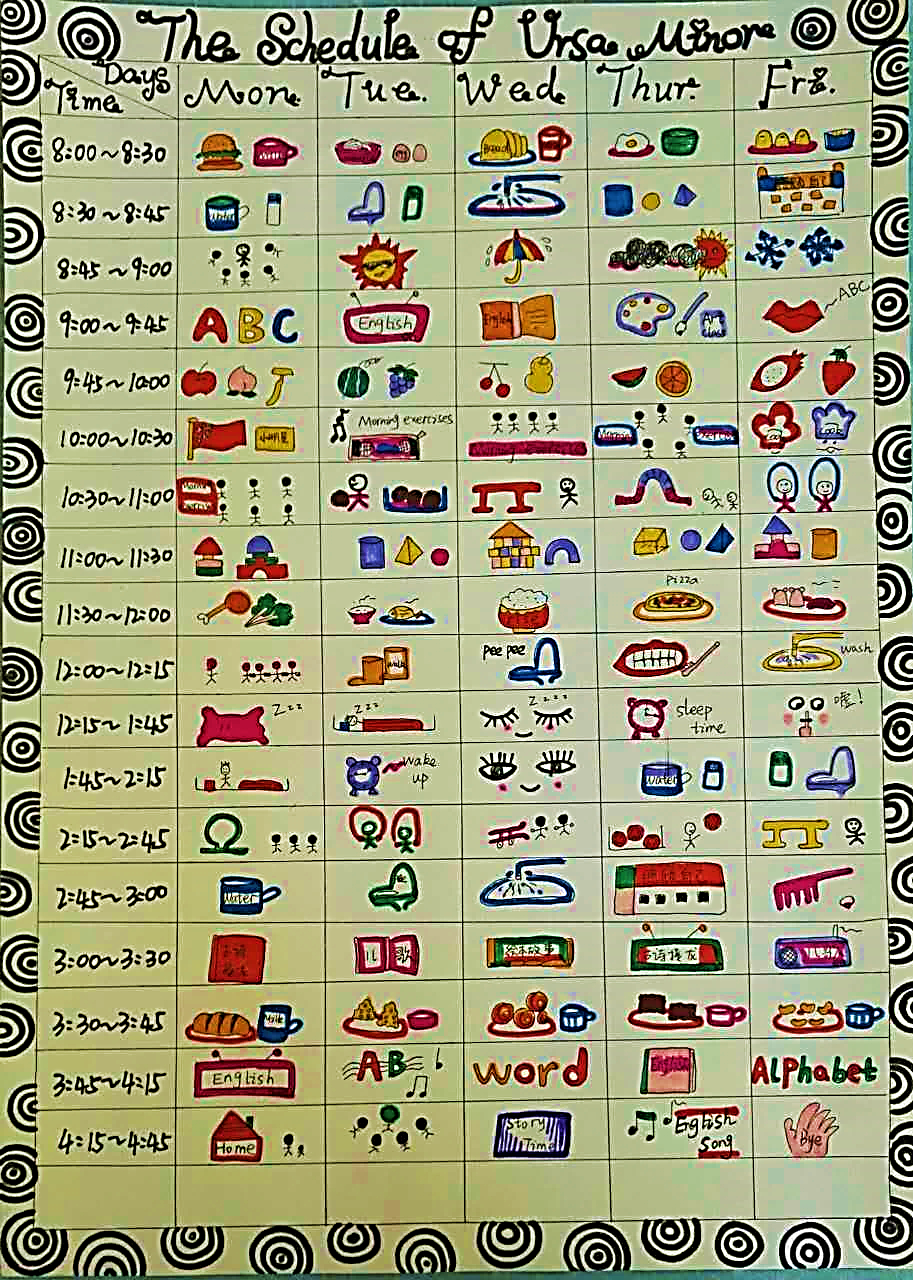 The Schedule of Ursa Minor
Days
Time
Mon.
Tue.
Wed.
Thur.
Fri.
8:00~8:30
Bread
8:30~8:45
Water
8:45~9:00
9:00~9:45
ABC
English
English
Art
ABC
9:45~10:00
10:00~10:30
Morning exercises
Morning exercise
Cook
10:30~11:00
11:00~11:30
11:30~12:00
rise
pizza
12:00~12:15
pee pee
wash
12:15~1:45
zzz
zzz
zzzz
sleep
time
嘘!
1:45~2:15
wake
up
Water
2:15~2:45
2:45~3:00
Water
3:00~3:30
儿歌
绘本故事
古诗接龙
3:30~3:45
Milk
3:45~4:15
English
AB
word
English
Alphabet
4:15~4:45
Home
Story
Time
English
Song
Bye